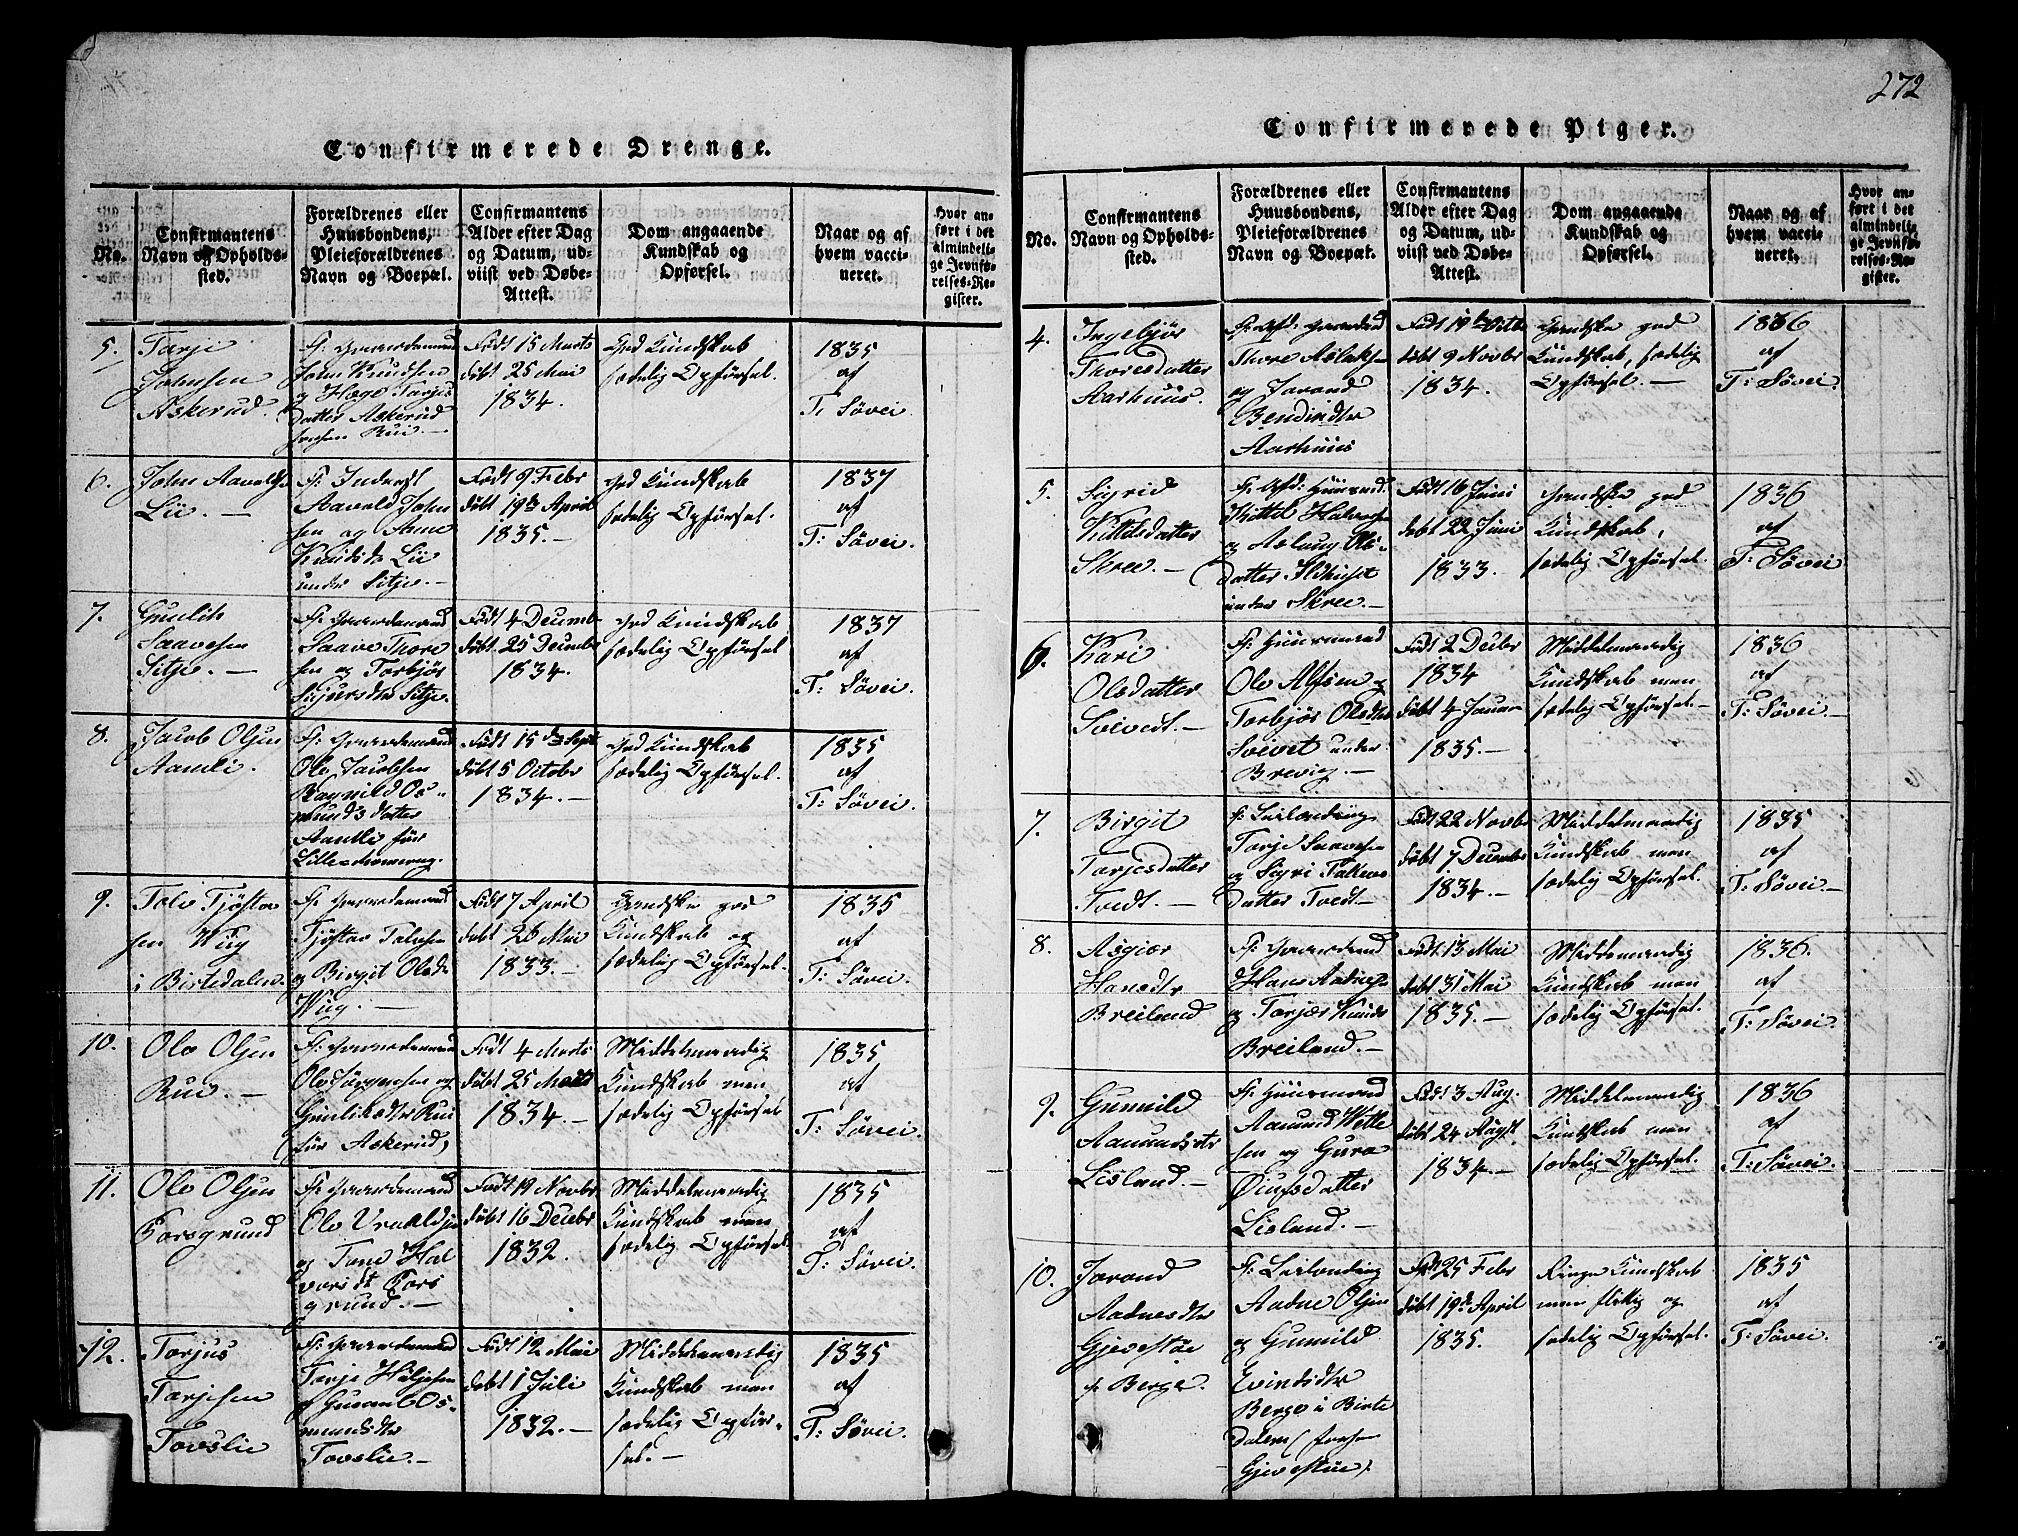 272
Confirmerede Drenge.
No.
Confirmantens
Navn og Opholds-
sted.
Forældrenes eller
Huusbondens,
Pleieforældrenes
Navn og Boepæl.
Confirmantens
Alder efter Dag
og Datum, ud-
viist ved Døbe-
Attest.
Dom angaaende
Kundskab og
Opførsel.
Naar og af
hvem vacci-
neret.
Hvor an-
ført i det
almindeli-
ge Jevnfø-
relses-Re-
gister.
5.
Torje
Johnsen
Askerud.
F: Gaardemand
John Knudsen
og Hæge Torjus
datter Askerud
Rui.—
Født 15 Marts
døbt 25 Mai
1834.
God Kundskab
sædelig Opførsel.
1835
af
T: Søvei.
6.
John Aavalds.
Lii.—
F: Inderst
Aavald John
sen og Anne
Knudsd. Lii
under Sitje.—
Født 9 Febr
døbt 19de April
1835.—
God Kundskab
sædelig Opførsel.
1837
af
T: Søvei.
7.
Gunlik
Saavesen
Sitje.—
F: Gaardemand
Saave Thore
sen og Torbjør
Sjursdtr Sitje.
Født 4 Decemb
døbt 25 Decembr
1834.
God Kundskab
sædelig Opførsel
1837
af
T: Søvei.
8.
Jacob Olsen
Aamli.
F: Gaardemand
Ole Jacobsen
Ragnild Os-
munds datter
Aamli før
Født 15 de Sept
døbt 5 Octobr
1834.—
God Kundskab
sædelig Opførsel.
1835
af
T: Søvei.
9.
Talv Tjøsta
sen Wiig
i Birtedalen.
F: Gaardemand
Tjøstav Talvsen
og Birgit Olsdr
Wiig.—
Født 7 April
døbt 26 Mai
1833.—
Gandske god
Kundskab og
sædelig Opførsel.
1835
af
T: Søvei.
10.
Olv Olsen
Rui.—
F: Gaardemand
Olv Jørgensen og
Rui
før Askerud,
Født 4 Marts
døbt 25 Marts
1834.—
Middelmaadig
Kundskab men
sædelig Opførsel
1835
af
T: Søvei.
11.
Olv Olsen
Forsgrund
F: Gaardemand
Olv Vraaldsen
og Tone Hal
vorsdt Fors
grund.—
Født 19 Novbr
døbt 16 Decebr
1832.
Middelmaadig
Kundskab men
sædelig Opførsel
1835
af
T: Søvei.
12.
Torjus
Torjesen
Tovslie
F: Gaardemand
Torje Høljesen
og Gunild Os-
mundsdtr
Tovslie.—
Født 12 Mai
døbt 1 Juli
1832.—
Middelmaadig
Kundskab men
sædelig Opfør-
sel.—
1835
af
T: Søvei.
Confirmerede Piger.
No.
Confirmantens
Navn og Opholds-
sted.
Forældrenes eller
Huusbondens,
Pleieforældrenes
Navn og Boepæl.
Confirmantens
Alder efter Dag
og Datum, ud-
viist ved Døbe-
Attest.
Dom angaaende
Kundskab og
Opførsel.
Naar og af
hvem vacci-
neret.
Hvor an-
ført i det
almindeli-
ge Jevnfø-
relses-Re-
gister.
4.
Ingebjør
Thoresdatter
Aarhuus.
F: Afd: Gaardmd
Thore Aslaksen
og Jorand
Bendixdtr
Aarhuus
Født 19de Octbr
døbt 9 Novbr
1834.
Gandske god
Kundskab, sædelig
Opførsel.—
1836
af
T: Søvei.
5.
Sigrid
Kittilsdatter
Skree.—
F: Afd: Huusmd.
Kittil Halvors
og Aslaug Ols-
datter Ildhuset
under Skree.—
Født 16 Juni
døbt 22 Juni
1833.
Gandske god
Kundskab,
sædelig Opførsel.
1836
af
T: Søvei
6.
Kari
Olsdatter
Soivedt.—
F: Huusmand
Olv Alfsen og
Torbjør Olsdtr
Soivet under
Brevig.—
Født 2 Decbr
1834
døbt 4 Januar
1835.—
Middelmaadig
Kundskab men
sædelig Opførsel.—
1836
af
T: Søvei.—
7.
Birgit
Torjesdatter
Tvedt.—
F: Leilænding
Torje Saavesen
og Sigri Talleivs
datter Tvedt.—
Født 22 Novbr
døbt 7 Decembr
1834.—
Middelmaadig
Kundskab men
sædelig Opførsel.
1835
af
T: Søvei.—
8.
Asgjær
Hansdtr
Breiland
F: Gaardmand
Hans Aadnes
og Torjær Knuds
Breiland.—
Født 13 Mai
døbt 31 Mai
1835.—
Middemaadig
Kundskab men
sædelig Opførsel.
1836.
af
T: Søvei.
9.
Gunnild
Aamundsdtr
Lisland.—
F: Huusmand
Aamund Wetle
sen og Guro
Øiufsdatter
Lisland.—
Født 3 Aug.
døbt 24 Augst.
1834.—
Middelmaadig
Kundskab men
sædelig Opførsel.
1836
af
T: Søvei.
10.
Jorand
Aadnesdtr
Gjevestøe
p. Berge.
F: Leilænding
Aadne Olsen
og Gunnild
Evindsdtr
Berge i Birte
dalen
Gjevestøe).
Født 25 Febr
døbt 19de April
1835.
Ringe Kundskab
men flittig og
sædelig Opførsel.
1835
af
T: Søvei.